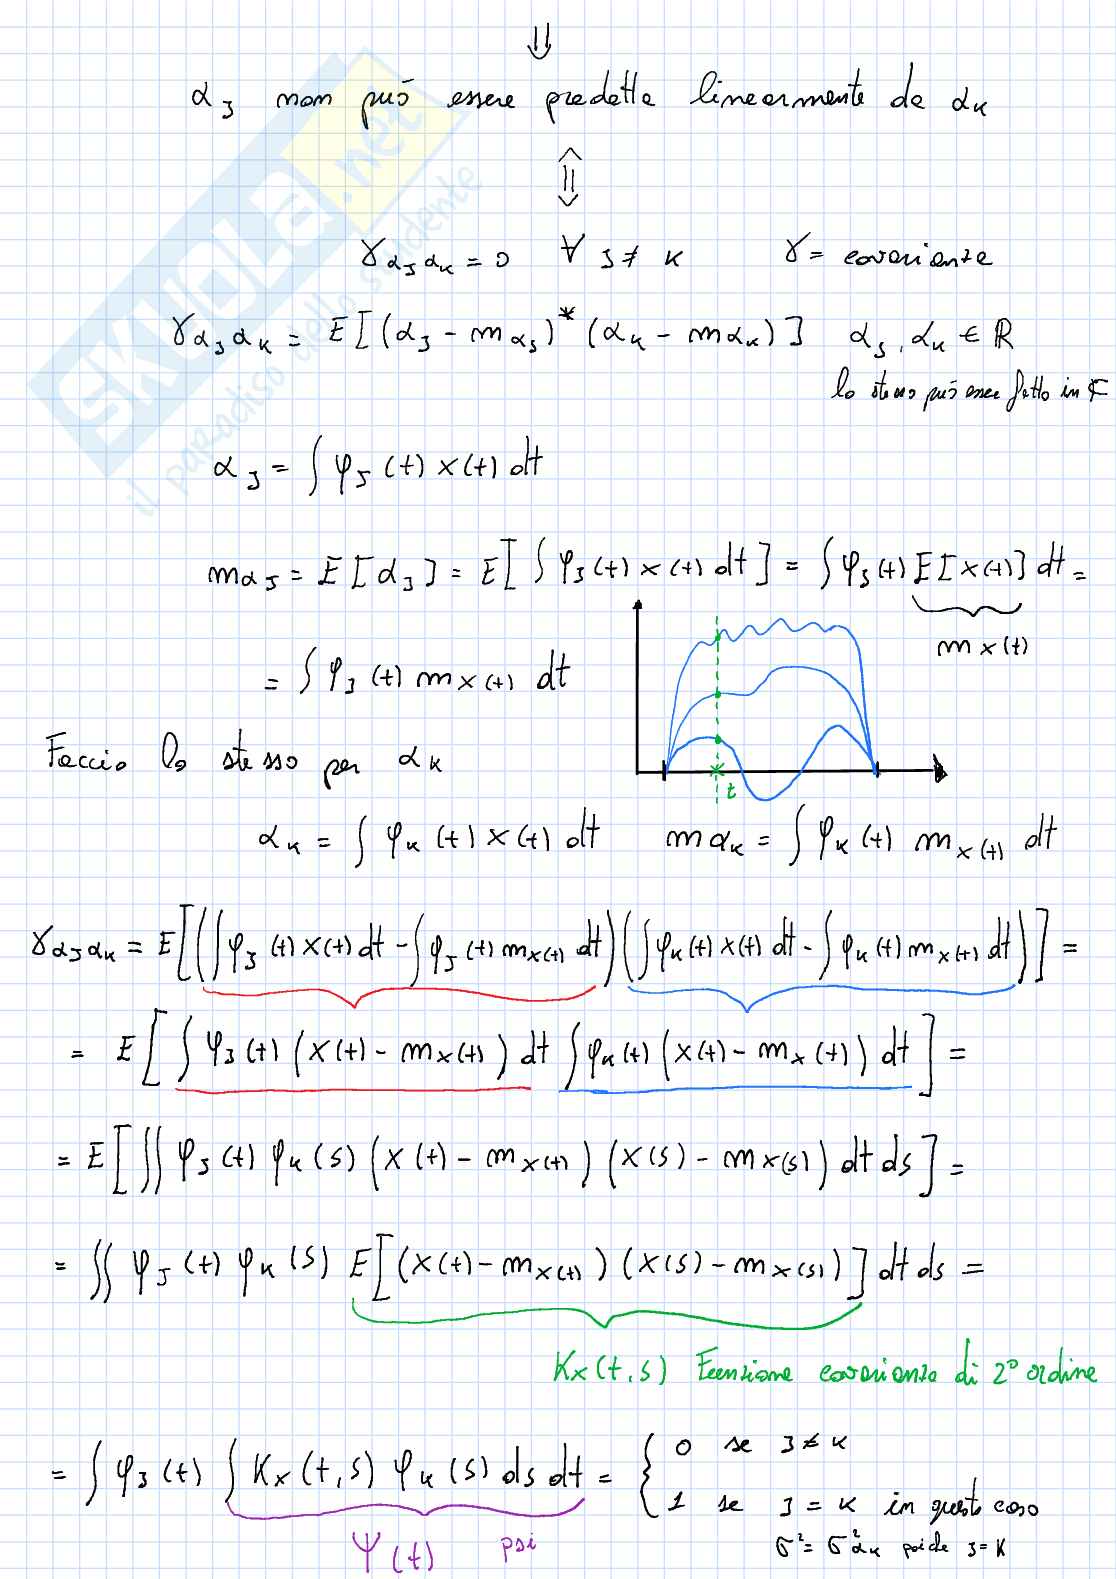 ⇓
α_J non può essere predetta linearmente da α_k
⇕
γ_{α_J α_k} = 0 ∀ J ≠ k γ = covarianza
γ_{α_J α_k} = E[(α_J - m_{α_J})^* (α_k - m_{α_k})] α_J, α_k ∈ ℝ
lo stesso può esser fatto in ℂ
α_J = ∫ φ_J(t) x(t) dt
m_{α_J} = E[α_J] = E[∫ φ_J(t) x(t) dt] = ∫ φ_J(t) E[x(t)] dt =
m_x(t)
= ∫ φ_J(t) m_{x(t)} dt
t
Faccio lo stesso per α_k
α_k = ∫ φ_k(t) x(t) dt m_{α_k} = ∫ φ_k(t) m_{x(t)} dt
γ_{α_J α_k} = E[(∫ φ_J(t) x(t) dt - ∫ φ_J(t) m_{x(t)} dt)(∫ φ_k(t) x(t) dt - ∫ φ_k(t) m_{x(t)} dt)] =
= E[∫ φ_J(t) (x(t) - m_{x(t)}) dt ∫ φ_k(t) (x(t) - m_x(t)) dt] =
= E[∬ φ_J(t) φ_k(s) (x(t) - m_{x(t)}) (x(s) - m_{x(s)}) dt ds] =
= ∬ φ_J(t) φ_k(s) E[(x(t) - m_{x(t)}) (x(s) - m_{x(s)})] dt ds =
K_x(t,s) Funzione covarianza di 2° ordine
= ∫ φ_J(t) ∫ K_x(t,s) φ_k(s) ds dt = { 0 se J ≠ k
1 se J = k in questo caso
Ψ(t) psi
σ² = σ²_{α_k} poiché J = k
SKUOLA.net
il paradiso dello studente